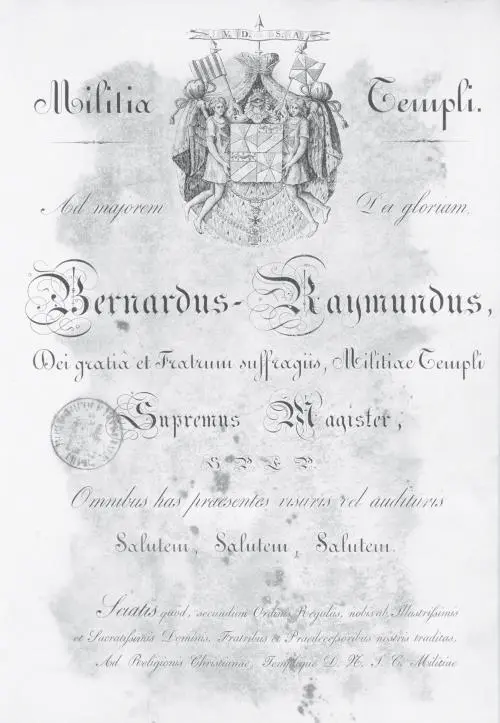 V. D. S. A.
Militia Templi.
Ad majorem Dei gloriam,
Bernardus-Raymundus,
Dei gratiâ et Fratrum suffragiis, Militiae Templi
Supremus Magister,
Omnibus has praesentes visuris vel audituris
Salutem, Salutem, Salutem.
Sciatis quod, secundum Ordinis Regulas, nobis ab Illustrissimis
et Sacratissimis Dominis, Fratribus et Praedecessoribus nostris traditas,
Ad Religionis Christianae, Templique D. N. J. C. Militiae